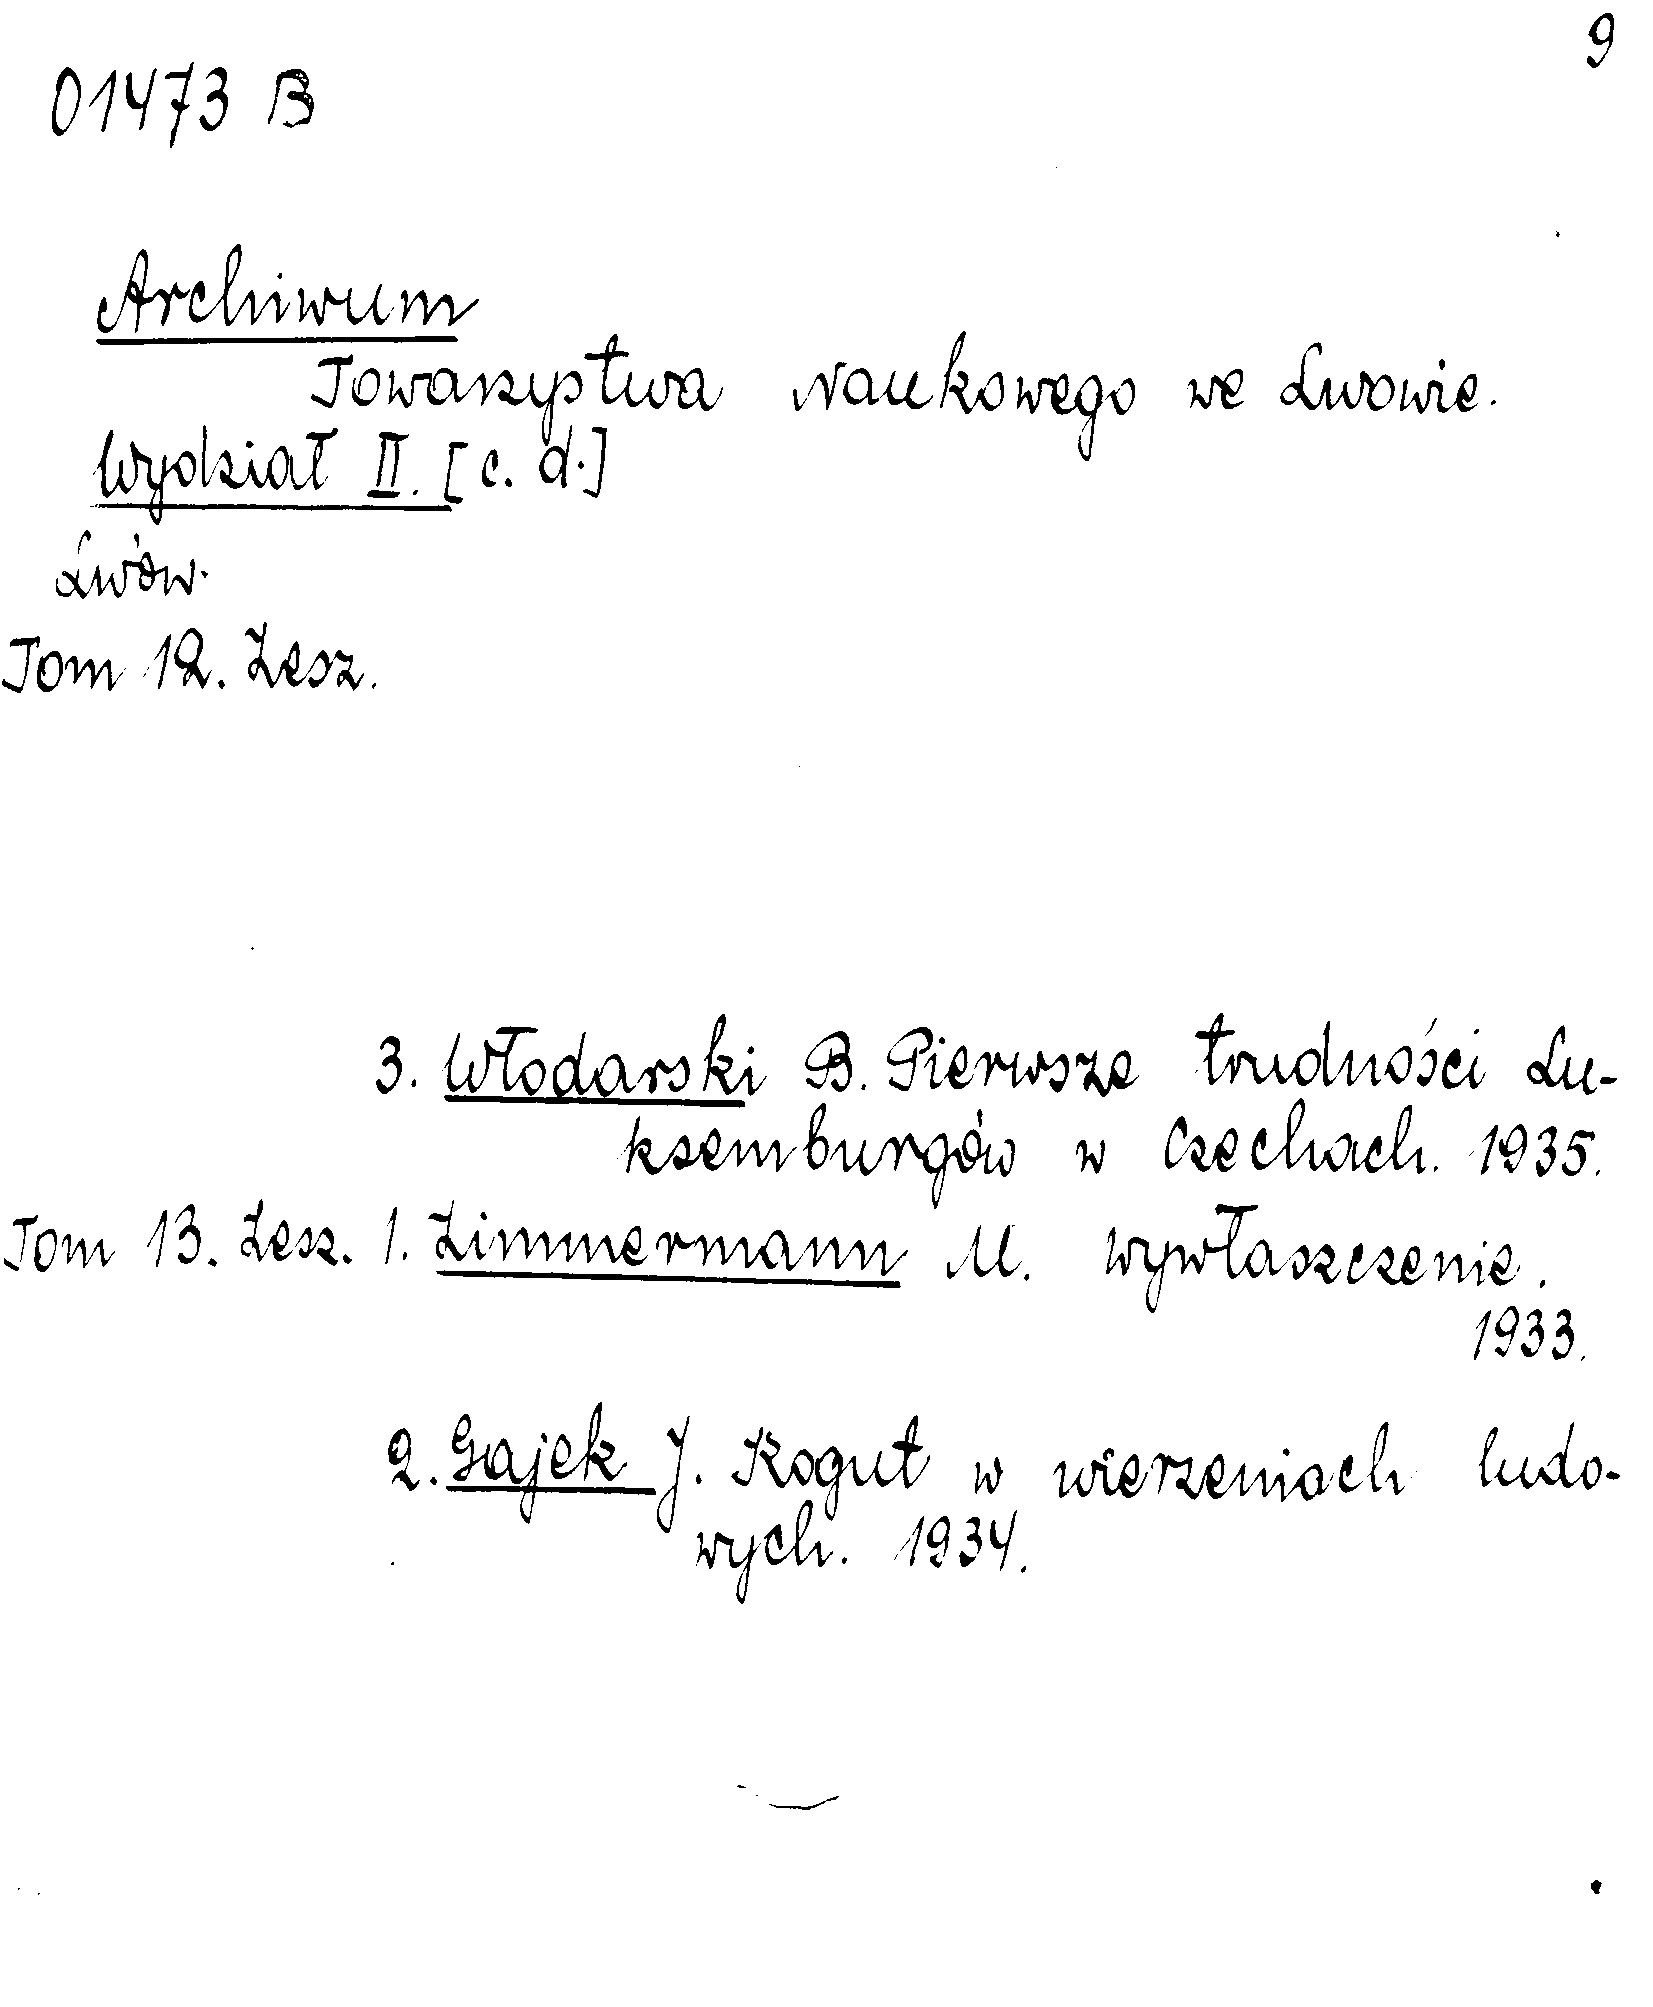 9
01473 B
Archiwum
Towarzystwa Naukowego we Lwowie.
Wydział II. [c. d.]
Lwów.
Tom 12. Zesz.
3. Włodarski B. Pierwsze trudności Lu-
ksemburgów w Czechach. 1935.
Tom 13. Zesz. 1. Zimmermann M. Wywłaszczenie.
1933.
2. Gajek J. Kogut w wierzeniach ludo-
wych. 1934.